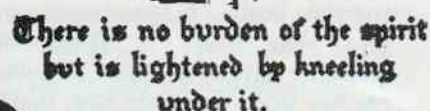 There is no burden of the spirit
but is lightened by kneeling
under it.